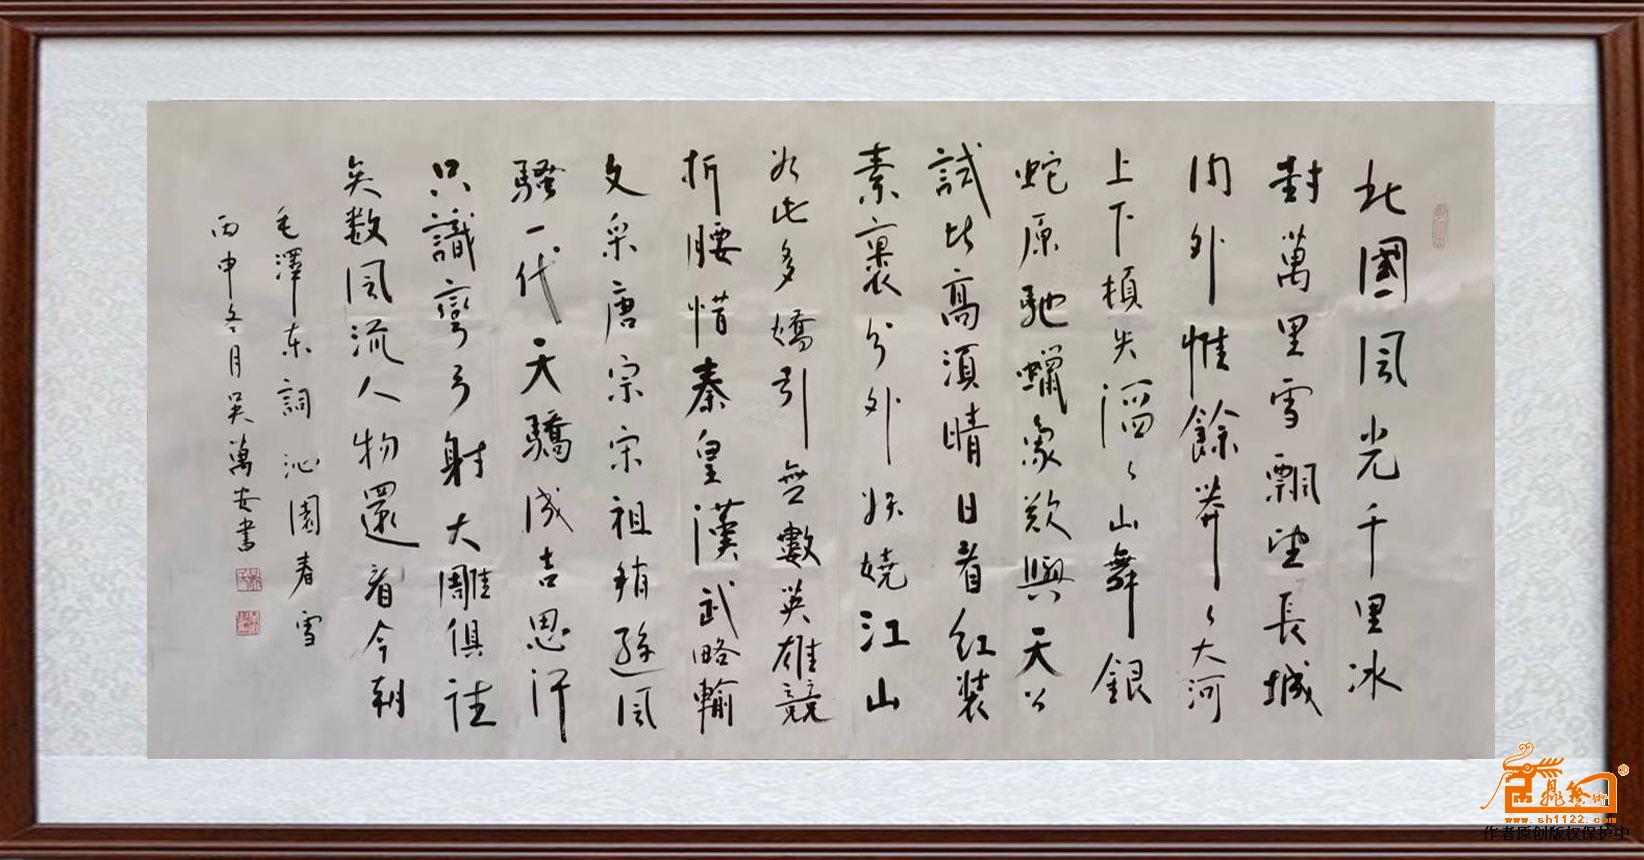 北國風光千里冰
封萬里雪飄望長城
内外惟餘莽々大河
上下頓失滔々山舞銀
蛇原馳蠟象欲與天公
試比高須晴日看紅裝
素裹分外妖嬈江山
如此多嬌引無數英雄競
折腰惜秦皇漢武略輸
文采唐宗宋祖稍遜風
騷一代天驕成吉思汗
只識彎弓射大雕俱往
矣数風流人物還看今朝
毛澤东詞沁園春雪
丙申冬月吴萬安書
www.sh1122.com
作者原创版权保护中